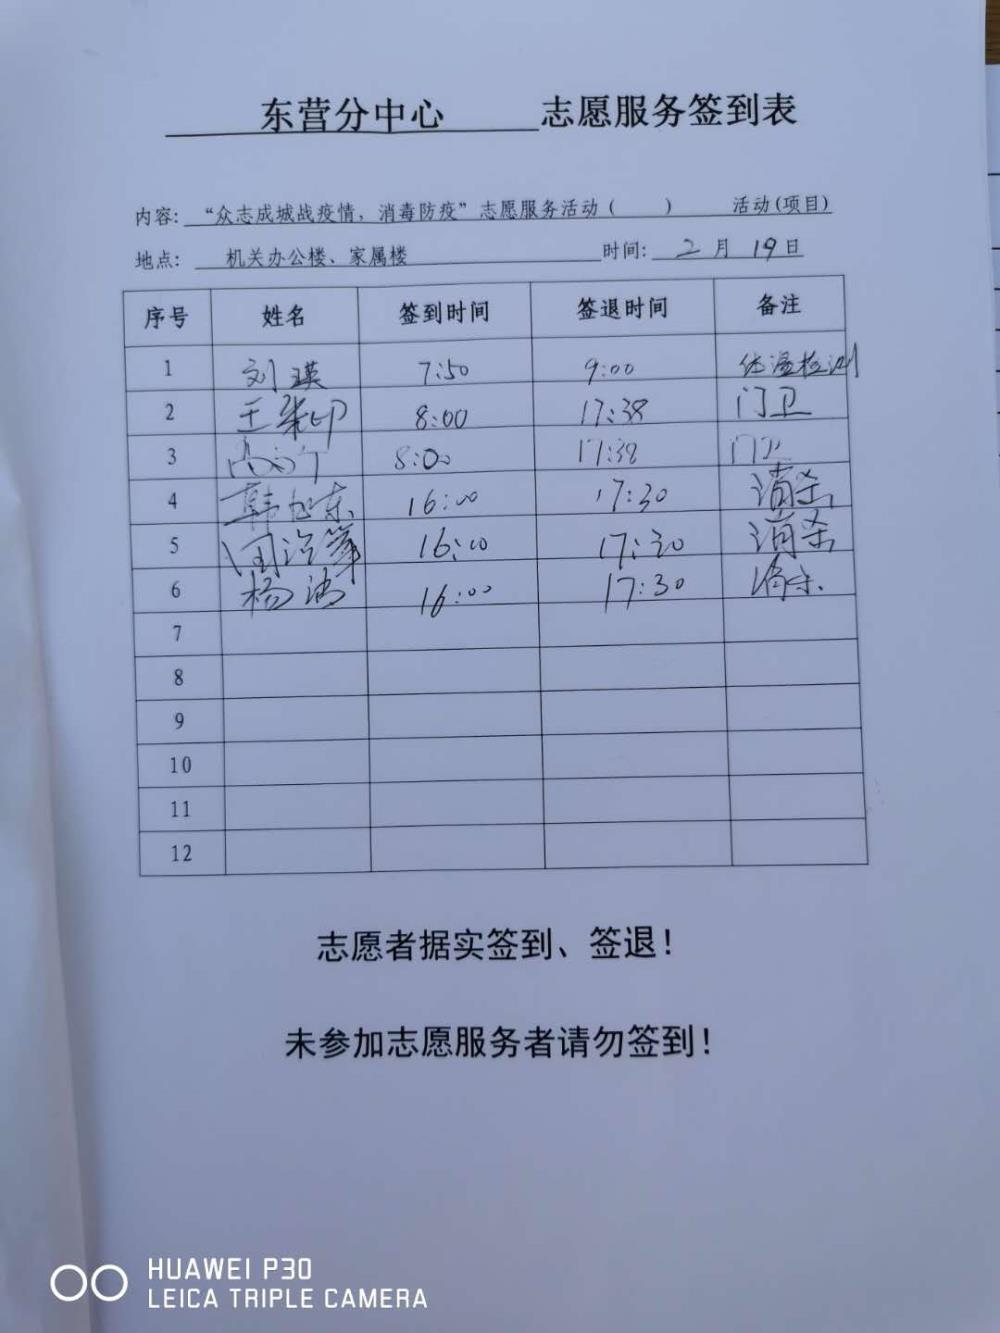 东营分中心 志愿服务签到表
内容: “众志成城战疫情，消毒防疫”志愿服务活动（ ） 活动(项目)
地点: 机关办公楼、家属楼 时间: 2月19日
序号 姓名 签到时间 签退时间 备注
1 刘瑛 7:50 9:00 体温检测
2 王 8:00 17:38 门卫
3 8:00 17:38 门卫
4 韩 东 16:00 17:30 消杀
5 16:00 17:30 消杀
6 杨涛 16:00 17:30 消杀
7
8
9
10
11
12
志愿者据实签到、签退！
未参加志愿服务者请勿签到！
HUAWEI P30
LEICA TRIPLE CAMERA